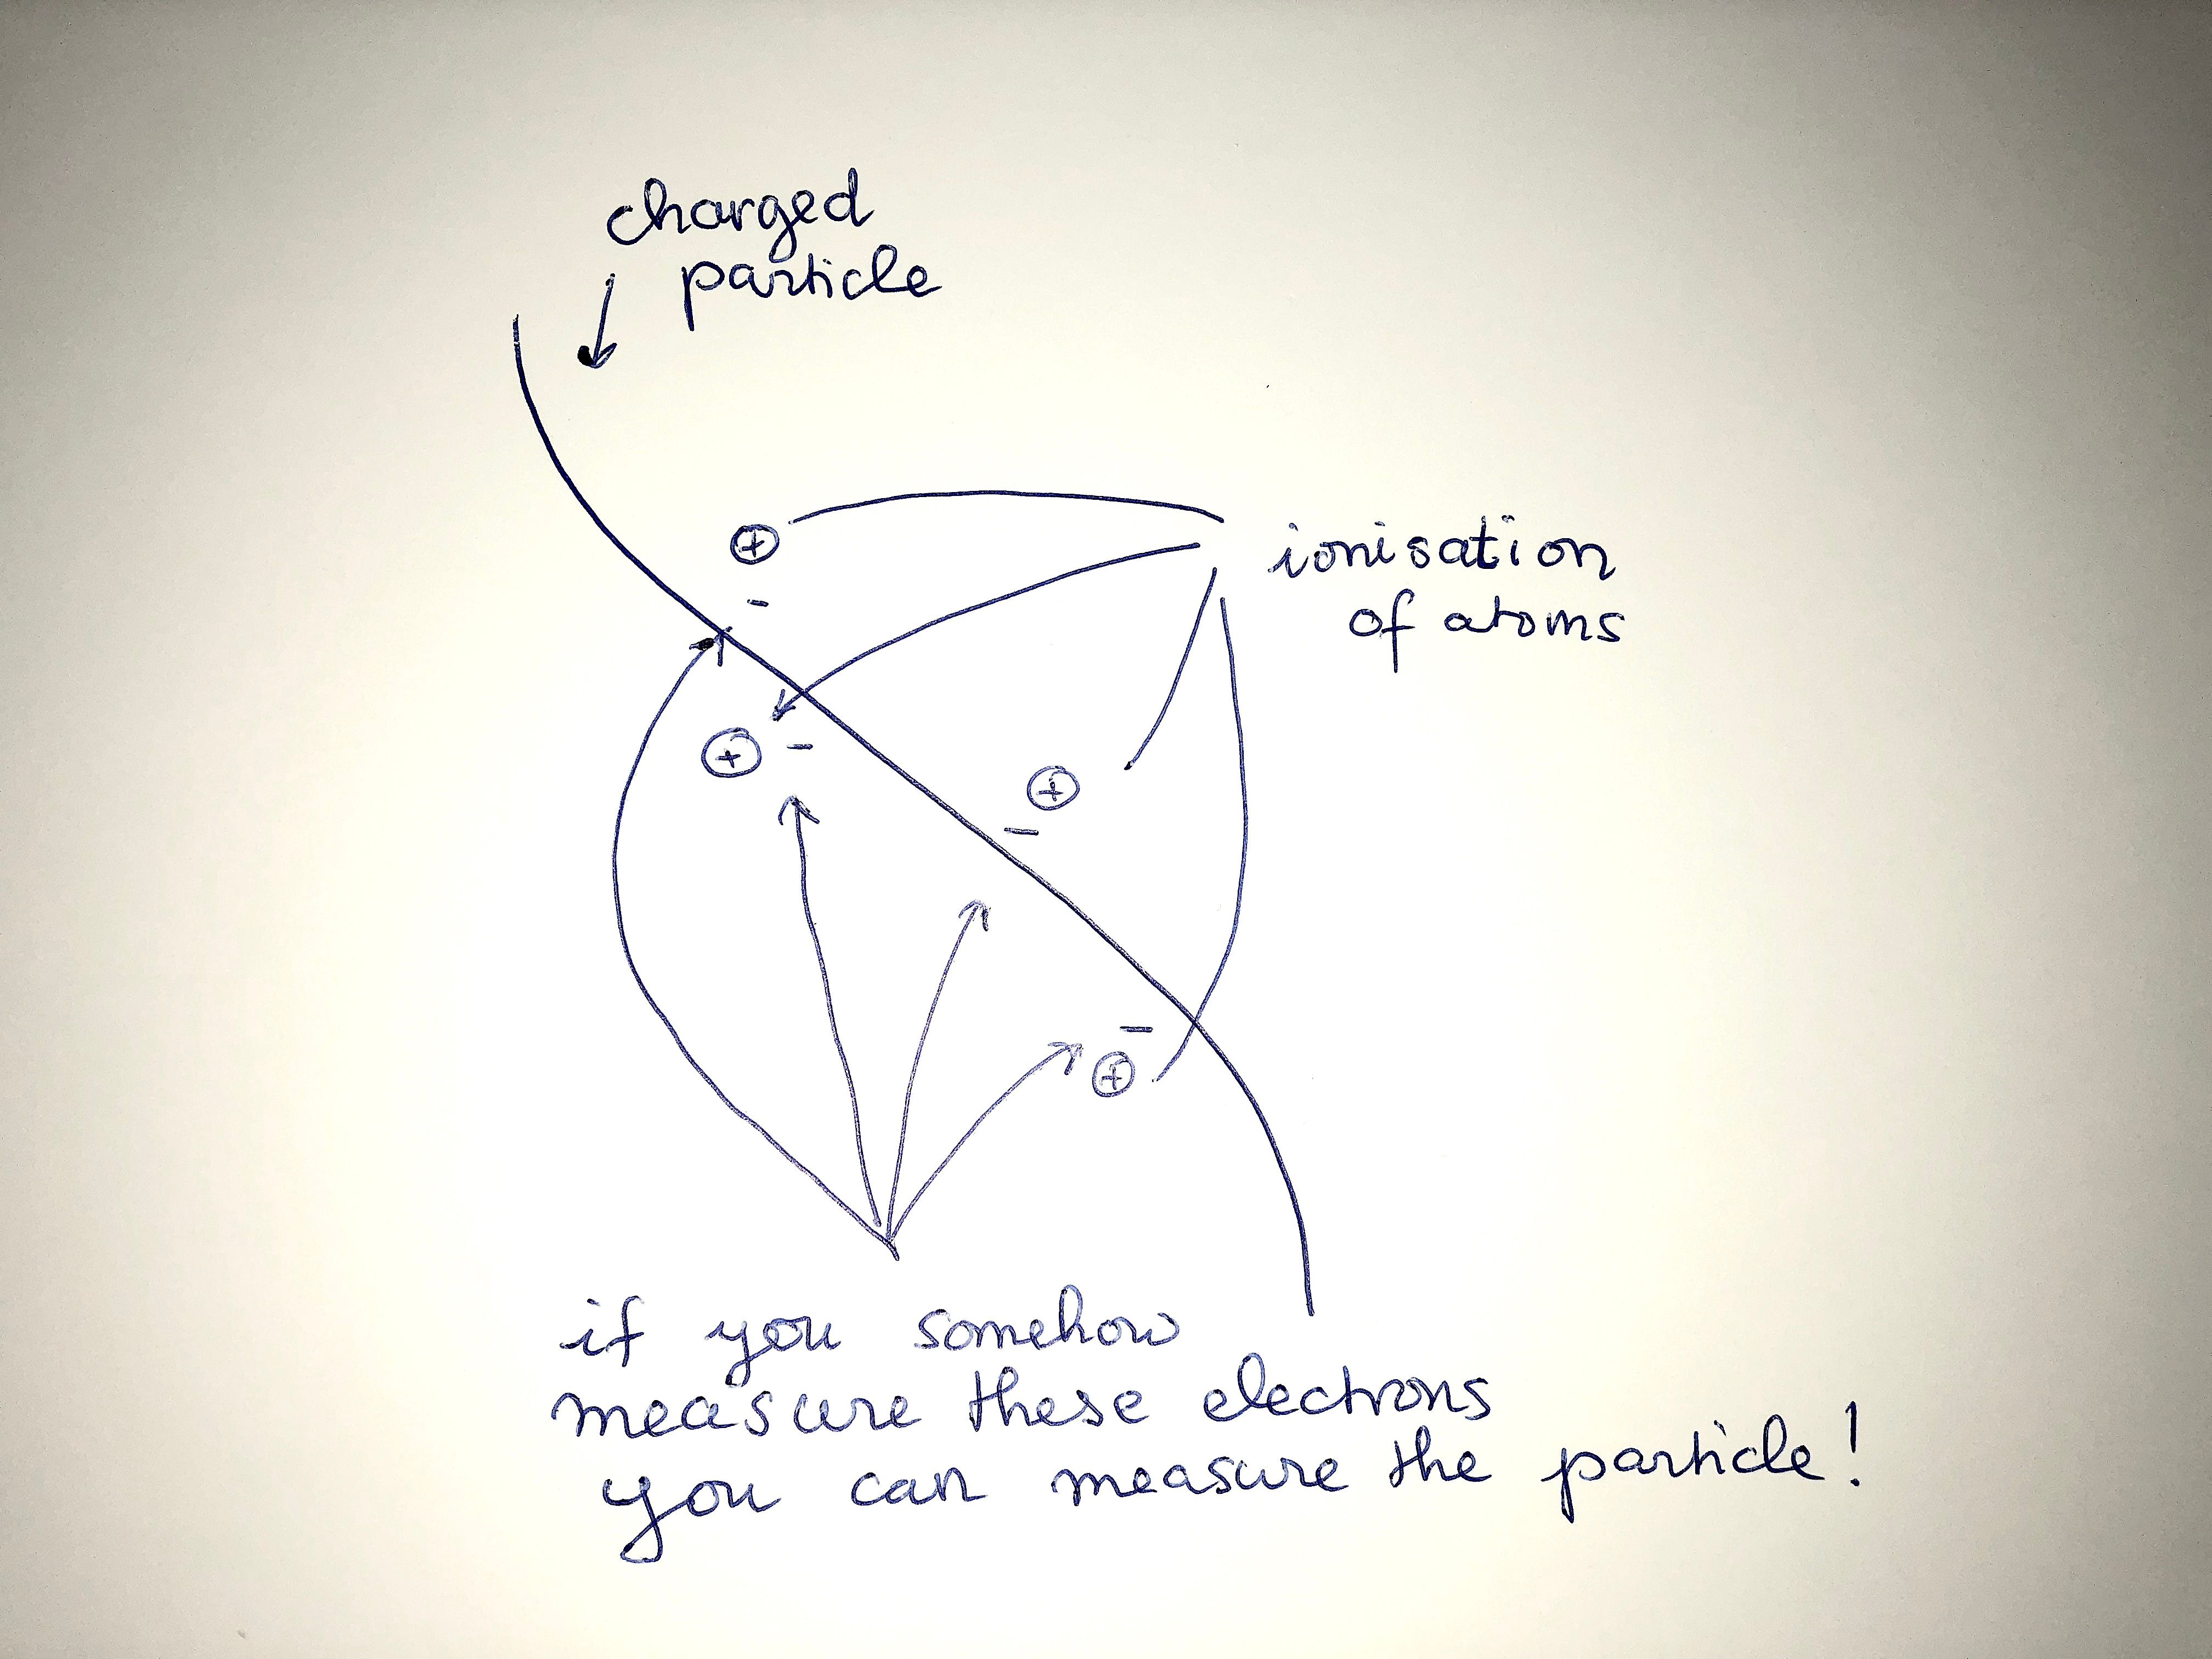 charged
particle
ionisation
of atoms
+
-
+ -
+
-
-
+
if you somehow
measure these electrons
you can measure the particle!